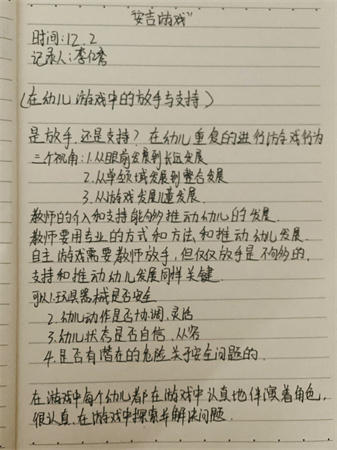 "安吉游戏"
时间:12.2
记录人:李亿
(在幼儿游戏中的放手与支持)
是放手,还是支持?在幼儿重复的进行游戏行为
三个视角:1.从眼前发展到长远发展
2.从单领域发展到整合发展
3.从游戏发展儿童发展.
教师的介入和支持能够推动幼儿的发展.
教师要用专业的方式和方法,和推动幼儿发展.
自主游戏需要教师放手,但仅仅放手是不够的.
支持和推动幼儿发展同样关键.
可以1.玩具器械是否安全
2.幼儿动作是否协调,灵活
3.幼儿状态是否自信,从容
4.是否有潜在的危险关于安全问题的.
在游戏中每个幼儿都在游戏中认真地伴演着角色,
很认真.在游戏中探索并解决问题.